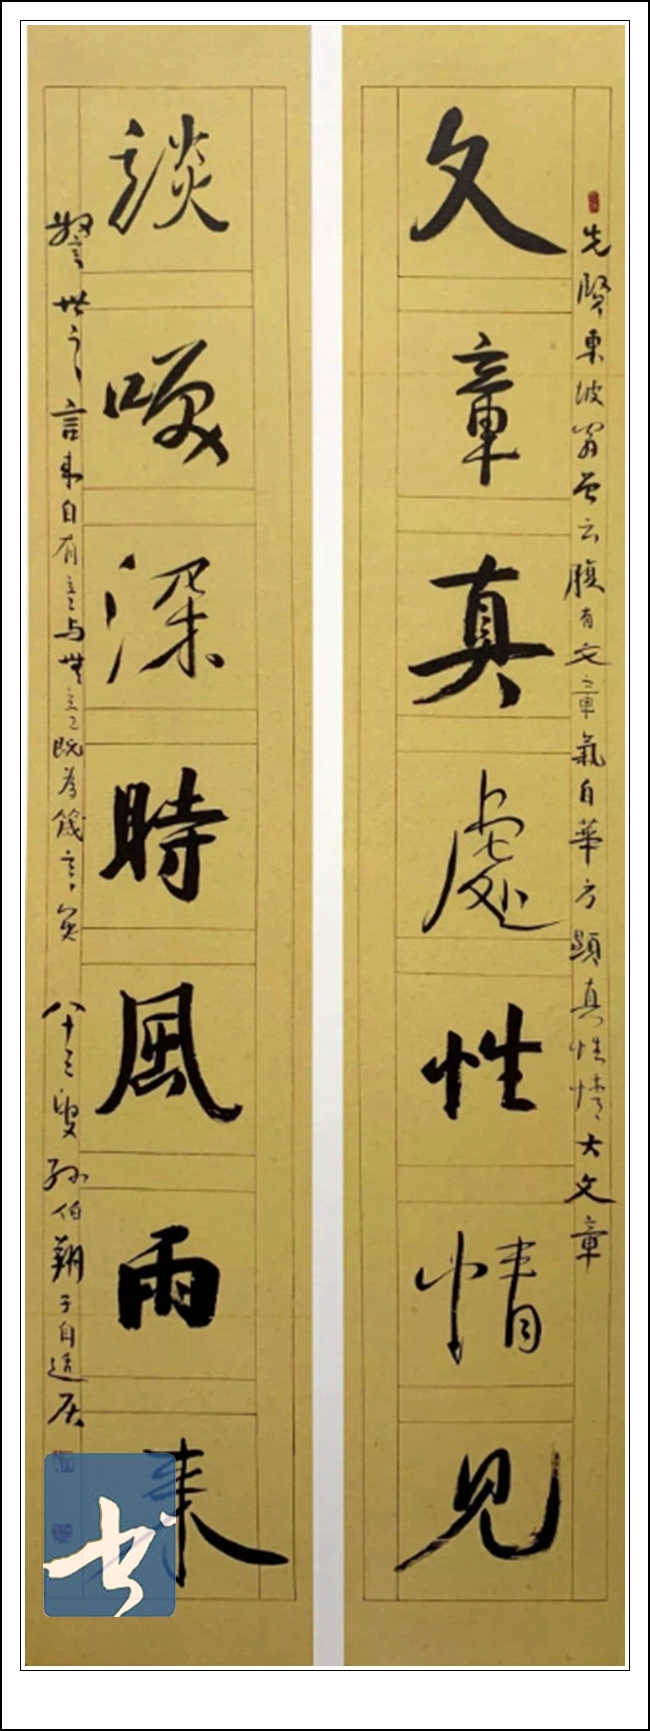 先賢東坡翁曾云腹有文章氣自華方顯真性情大文章
文章真處性情見
談咲深時風雨來
警世之言來自有意与無意既為箴言矣
八十三叟孫伯翔于自适居